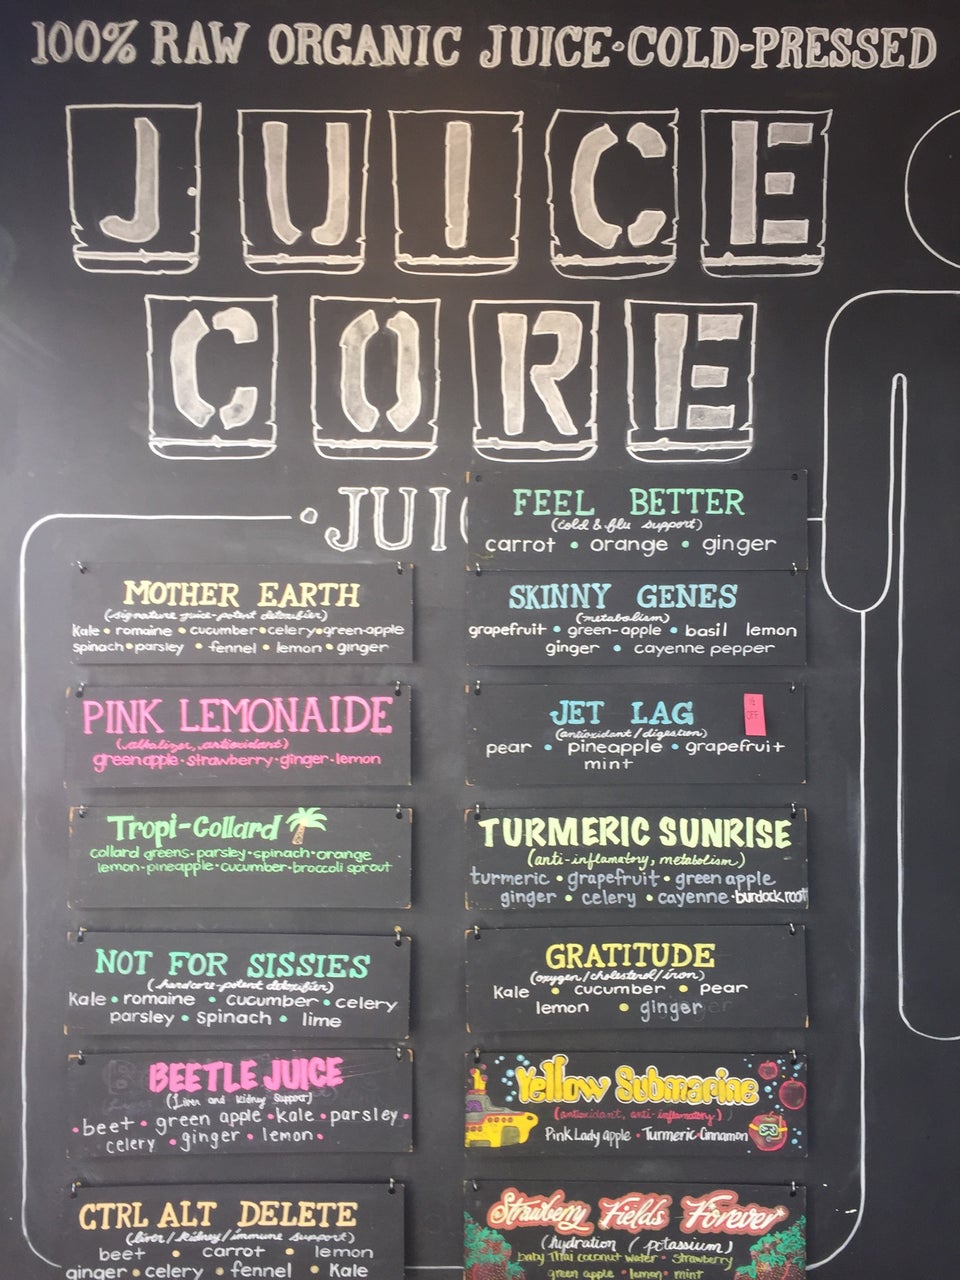 100% RAW ORGANIC JUICE·COLD-PRESSED
JUICE
CORE
·JUIC
MOTHER EARTH
(signature juice-potent detoxifier)
Kale • romaine • cucumber • celery • green-apple
spinach • parsley • fennel • lemon • ginger
PINK LEMONAIDE
(alkalizer, antioxidant)
green apple · strawberry · ginger · lemon
Tropi-Collard
collard greens · parsley · spinach · orange
lemon · pineapple · cucumber · broccoli sprout
NOT FOR SISSIES
(hardcore-potent detoxifier)
Kale • romaine • cucumber • celery
parsley • spinach • lime
BEETLE JUICE
(Liver and Kidney Support)
• beet • green apple • kale • parsley •
celery • ginger • lemon •
CTRL ALT DELETE
(liver / kidney / immune support)
beet • carrot • lemon
ginger • celery • fennel • Kale
FEEL BETTER
(cold & flu support)
carrot • orange • ginger
SKINNY GENES
(metabolism)
grapefruit • green-apple • basil lemon
ginger • cayenne pepper
JET LAG
(antioxidant / digestion)
pear • pineapple • grapefruit
mint
OFF
TURMERIC SUNRISE
(anti-inflamatory, metabolism)
turmeric • grapefruit • green apple
ginger • celery • cayenne • burdock root
GRATITUDE
(oxygen / cholesterol / iron)
Kale • cucumber • pear
lemon • ginger
Yellow Submarine
(antioxidant, anti-inflamatory)
Pink Lady apple · Turmeric · Cinnamon
Strawberry Fields Forever
(hydration / potassium)
baby Thai coconut water · strawberry
green apple • lemon • mint